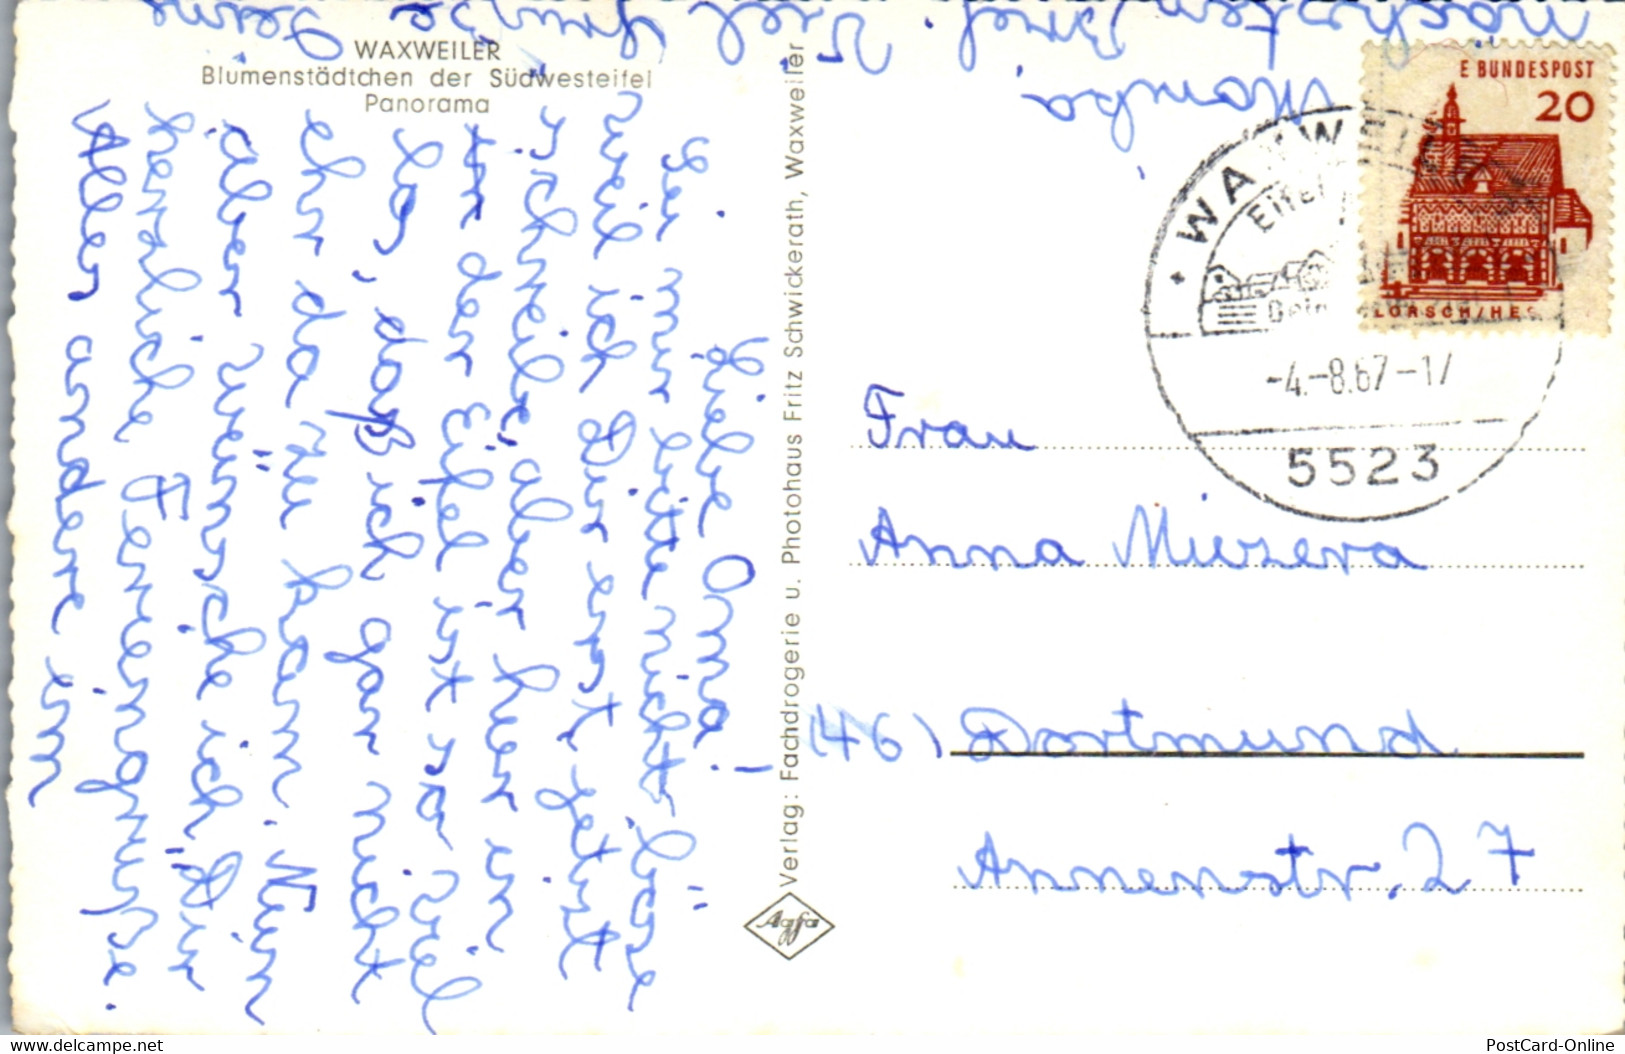 WAXWEILER
Blumenstädtchen der Südwesteifel
Panorama
Liebe Oma! –
Sei mir bitte nicht böse
weil ich Dir erst jetzt
schreibe, aber hier in
der Eifel ist so viel
los, daß ich gar nicht
eher da zu kam. Nun
aber wünsche ich Dir
herzliche Feriengrüße.
Alles andere im
nächsten Brief. Viel Grüße Deine
Monika
Verlag: Fachdrogerie u. Photohaus Fritz Schwickerath, Waxweiler
Agfa
E BUNDESPOST
20
LORSCH/HES
WAXWEILER
Eifel
-4.-8.67-17
5523
Frau
Anna Miozera
(46) Dortmund
Annenstr. 27
PostCard-Online
www.delcampe.net